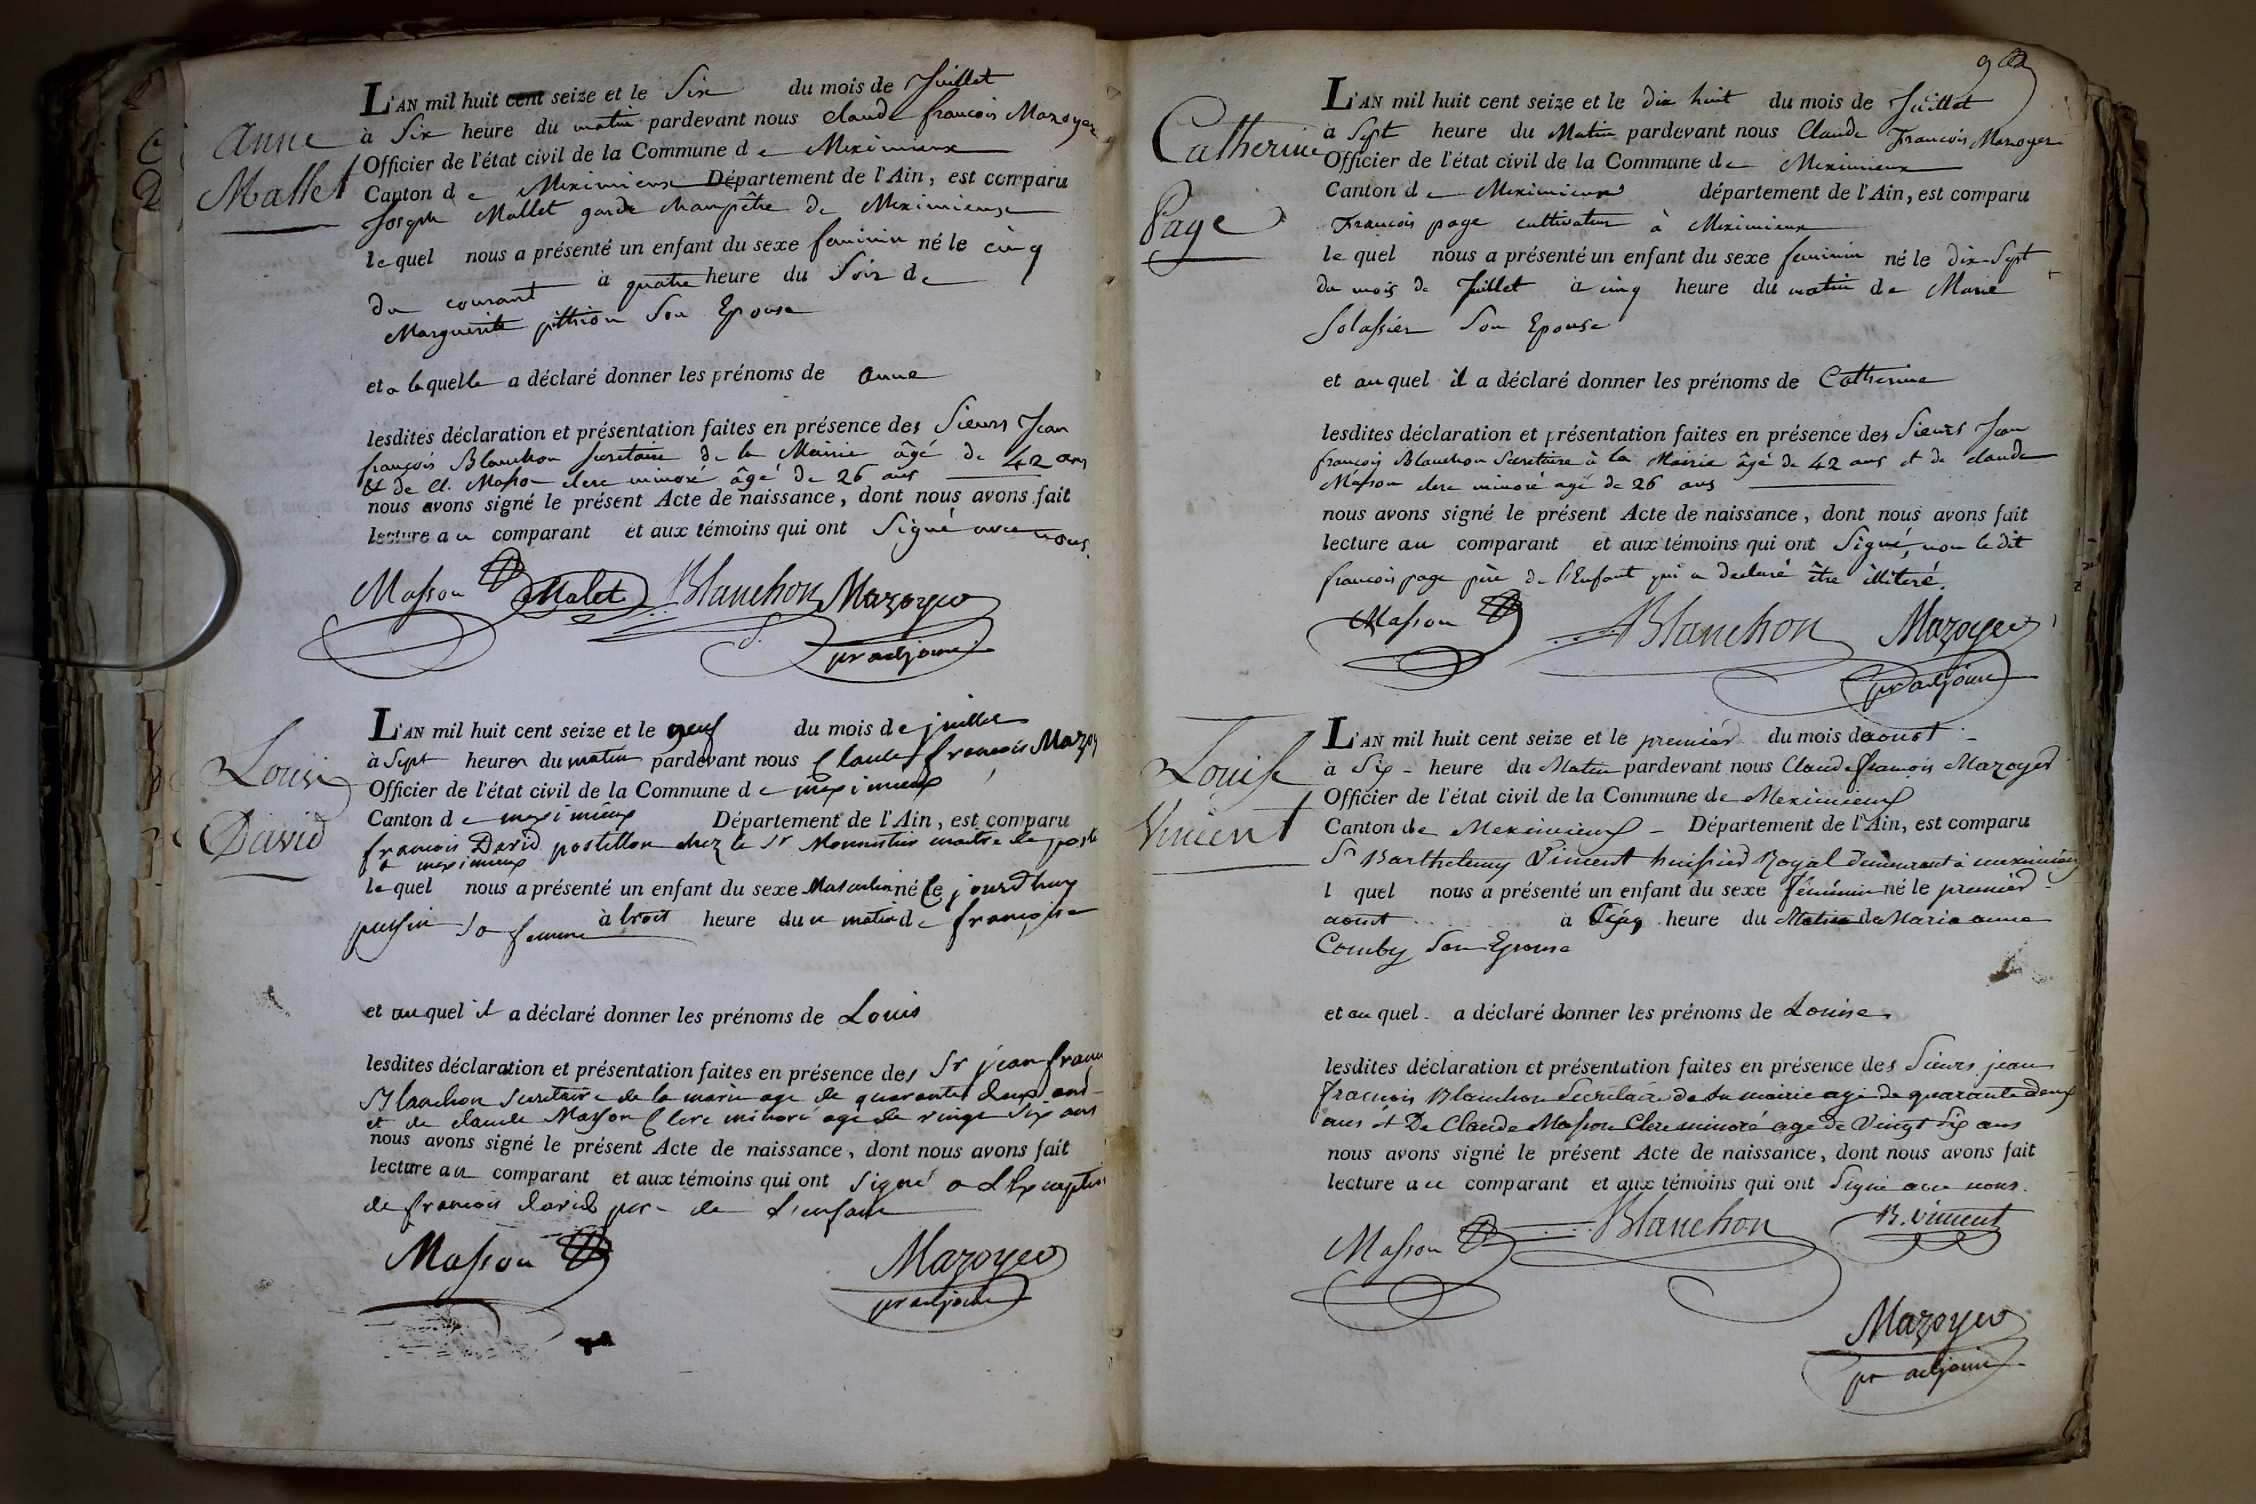 Anne
Mallet
L'AN mil huit cent seize et le Six du mois de Juillet
à Six heure du matin pardevant nous claude françois Mazoyer
Officier de l'état civil de la Commune de Meximieux
Canton de Meximieux Département de l'Ain, est comparu
Joseph Mallet garde champêtre de Meximieux
lequel nous a présenté un enfant du sexe feminin né le cinq
du courant à quatre heure du Soir de
Marguerite pithion Son Epouse
et a laquelle a déclaré donner les prénoms de anne
lesdites déclaration et présentation faites en présence des Sieurs Jean
françois Blanchon Secrétaire de la Mairie âgé de 42 ans
et de Cl. Masson clerc minoré âgé de 26 ans
nous avons signé le présent Acte de naissance, dont nous avons fait
lecture au comparant et aux témoins qui ont Signé avec nous.
Masson Malet Blanchon Mazoyer
pr adjoint
Louis
David
L'AN mil huit cent seize et le neuf du mois de juillet
à Sept heures du matin pardevant nous Claude françois Mazoy
Officier de l'état civil de la Commune de meximieux
Canton de meximieux Département de l'Ain, est comparu
françois David postillon chez le Sr Monnestier maitre de poste
a meximieux
lequel nous a présenté un enfant du sexe Masculin né le jourdhuy
à trois heure du matin de françoise
sa femme
et auquel il a déclaré donner les prénoms de Louis
lesdites déclaration et présentation faites en présence des Sr jean franc
Blanchon Secretaire de la marie age de quarante deux ans
et de claude Masson Clerc minoré age de vingt Six ans
nous avons signé le présent Acte de naissance, dont nous avons fait
lecture au comparant et aux témoins qui ont Signé a L'Exception
de françois david per de L'enfant
Masson Mazoyer
pr adjoint
Catherine
Page
L'AN mil huit cent seize et le dix huit du mois de Juillet
à Sept heure du Matin pardevant nous Claude François Mazoyer
Officier de l'état civil de la Commune de Meximieux
Canton de Meximieux département de l'Ain, est comparu
François page cultivateur à Meximieux
lequel nous a présenté un enfant du sexe feminin né le dix-Sept
du mois de Juillet à cinq heure du matin de Marie
Solassier Son Epouse
et auquel il a déclaré donner les prénoms de Catherine
lesdites déclaration et présentation faites en présence des Sieurs Jean
françois Blanchon Secretaire à la Mairie âgé de 42 ans et de claude
Masson clerc minoré agé de 26 ans
nous avons signé le présent Acte de naissance, dont nous avons fait
lecture au comparant et aux témoins qui ont Signé, non le dit
françois page père de l'Enfant qui a declaré être illitéré.
Masson Blanchon Mazoyer
pr adjoint
Louise
Vincent
L'AN mil huit cent seize et le premier du mois deaoust
à Six heure du Matin pardevant nous Claude françois Mazoyer
Officier de l'état civil de la Commune de Meximieux
Canton de Meximieux Département de l'Ain, est comparu
Sr Barthelemy Vincent huissier Royal demeurant à meximieux
l quel nous a présenté un enfant du sexe féminin né le premier
aout à Cinq heure du Matin de Marie anne
Comby Son Epouse
et au quel a déclaré donner les prénoms de Louise
lesdites déclaration et présentation faites en présence des Sieurs jean
françois Blanchon Secrétaire de la mairie agé de quarante deux
ans et De Claude Masson Clerc minoré agé de Vingt Six ans
nous avons signé le présent Acte de naissance, dont nous avons fait
lecture au comparant et aux témoins qui ont Signé avec nous.
Masson Blanchon B. Vincent
Mazoyer
pr adjoint